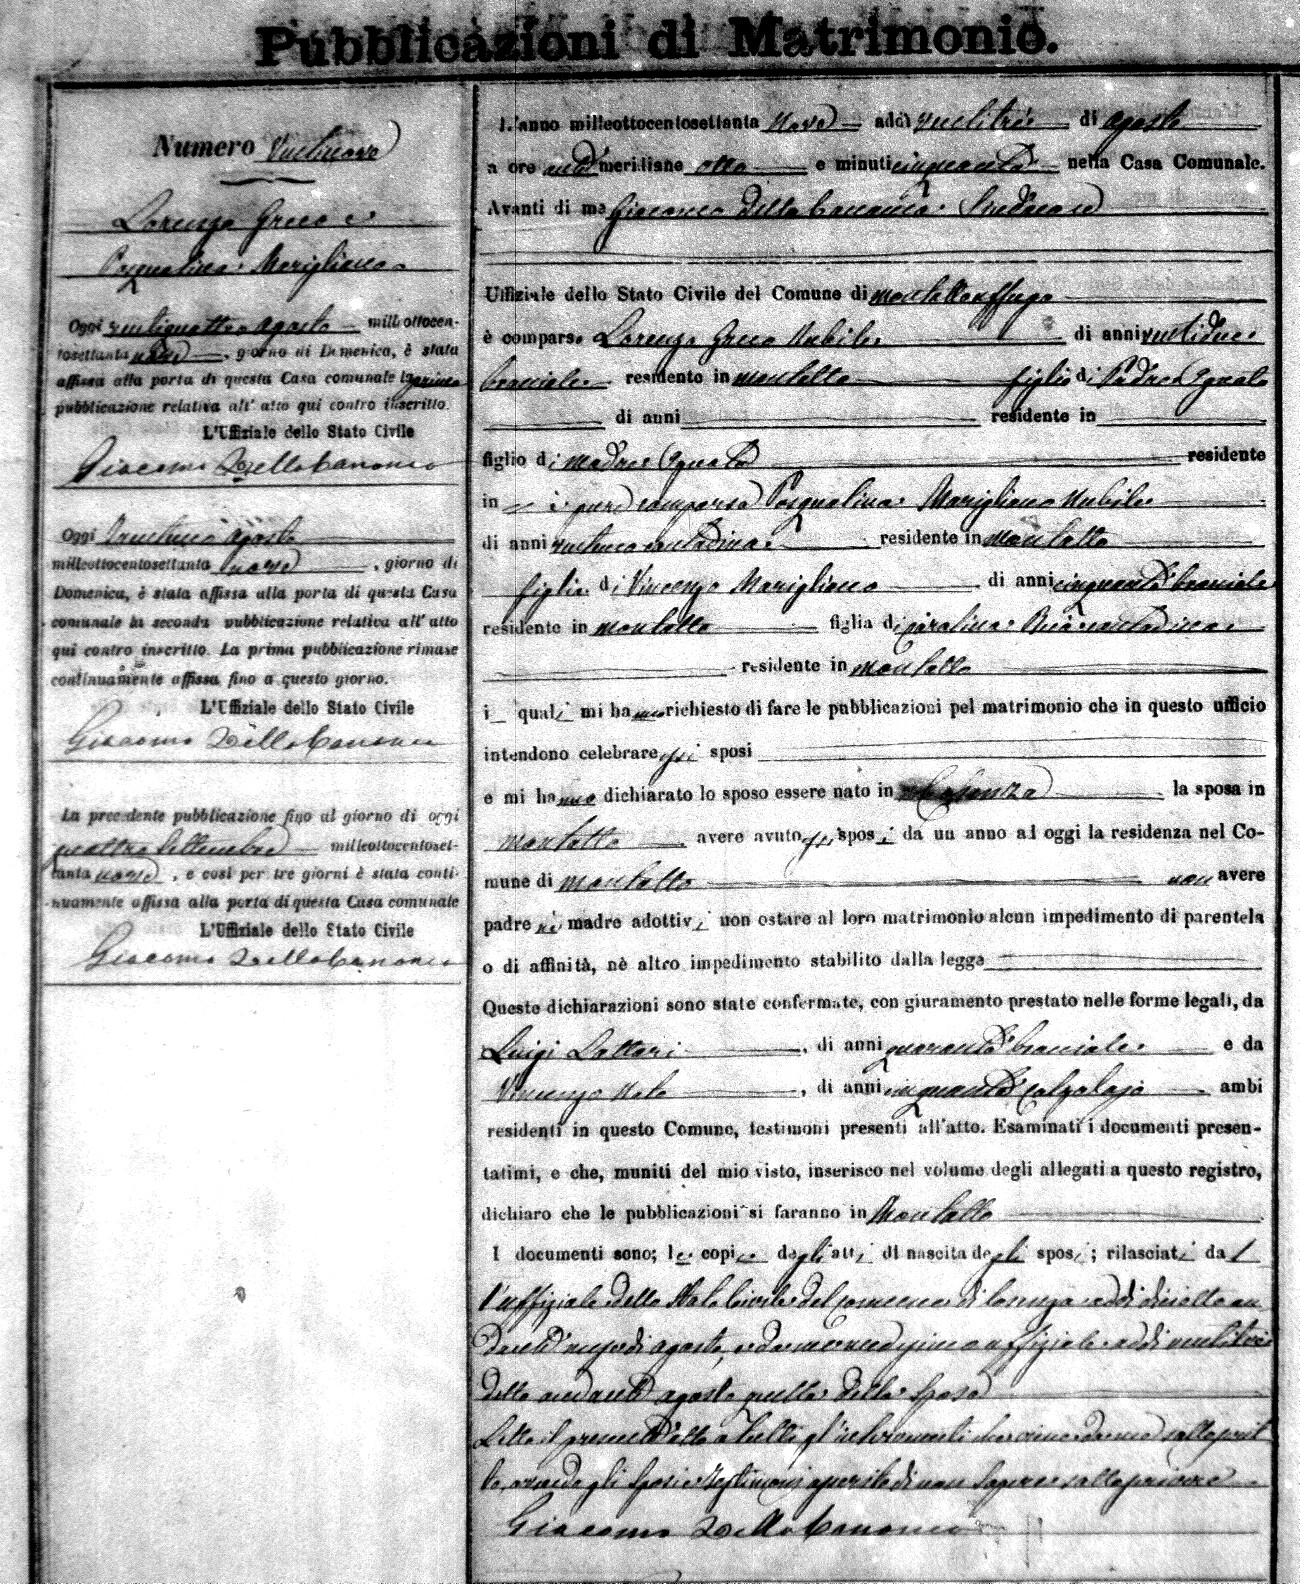 Pubblicazioni di Matrimonio.
Numero Ventinove
Lorenzo Greco e
Pasqualina Marigliano
Oggi ventiquattro Agosto milleottocen-
tosettanta nove, giorno di Domenica, è stata
affissa alla porta di questa Casa comunale la prima
pubblicazione relativa all'atto qui contro inscritto.
L'Uffiziale dello Stato Civile
Giacomo Della Cananea
Oggi trentuno Agosto
milleottocentosettanta nove, giorno di
Domenica, è stata affissa alla porta di questa Casa
comunale la seconda pubblicazione relativa all'atto
qui contro inscritto. La prima pubblicazione rimase
continuamente affissa fino a questo giorno.
L'Uffiziale dello Stato Civile
Giacomo Della Cananea
La precedente pubblicazione fino al giorno di oggi
quattro Settembre milleottocentoset-
tanta nove, e così per tre giorni è stata conti-
nuamente affissa alla porta di questa Casa comunale
L'Uffiziale dello Stato Civile
Giacomo Della Cananea
L'anno milleottocentosettanta nove addì ventitrè di agosto
a ore anti meridiane otto e minuti cinquanta nella Casa Comunale.
Avanti di me Giacomo Della Cananea Sindaco
Uffiziale dello Stato Civile del Comune di Montaltouffugo
è comparso Lorenzo Greco Nubile di anni ventidue
bracciale residente in Montalto figlio di Padre Ignoto
di anni residente in
figlio di madre Ignota residente
in è pure comparsa Pasqualina Marigliano Nubile
di anni contadina residente in Montalto
figlia di Vincenzo Marigliano di anni cinquanta bracciale
residente in Montalto figlia di contadina
residente in Montalto
i quali mi hanno richiesto di fare le pubblicazioni pel matrimonio che in questo ufficio
intendono celebrare essi sposi
e mi hanno dichiarato lo sposo essere nato in Cosenza la sposa in
Montalto avere avuto essi sposi da un anno ad oggi la residenza nel Co-
mune di Montalto non avere
padre nè madre adottivi non ostare al loro matrimonio alcun impedimento di parentela
o di affinità, nè altro impedimento stabilito dalla legge
Queste dichiarazioni sono state confermate, con giuramento prestato nelle forme legali, da
Luigi Lattari, di anni quaranta bracciale e da
Vincenzo, di anni cinquanta Calzolajo ambi
residenti in questo Comune, testimoni presenti all'atto. Esaminati i documenti presen-
tatimi, e che, muniti del mio visto, inserisco nel volume degli allegati a questo registro,
dichiaro che le pubblicazioni si faranno in Montalto
I documenti sono; le copie degli atti di nascita degli sposi; rilasciati da l
l'uffiziale dello Stato Civile del comune di Cosenza addì diciotto an-
dante di agosto, uffiziale addì ventitrè
dello andante agosto quella della Sposa
Letto il presente atto a tutti gl'intervenuti
gli Sposi e Testimoni di non Sapere sottoscrivere
Giacomo Della Cananea